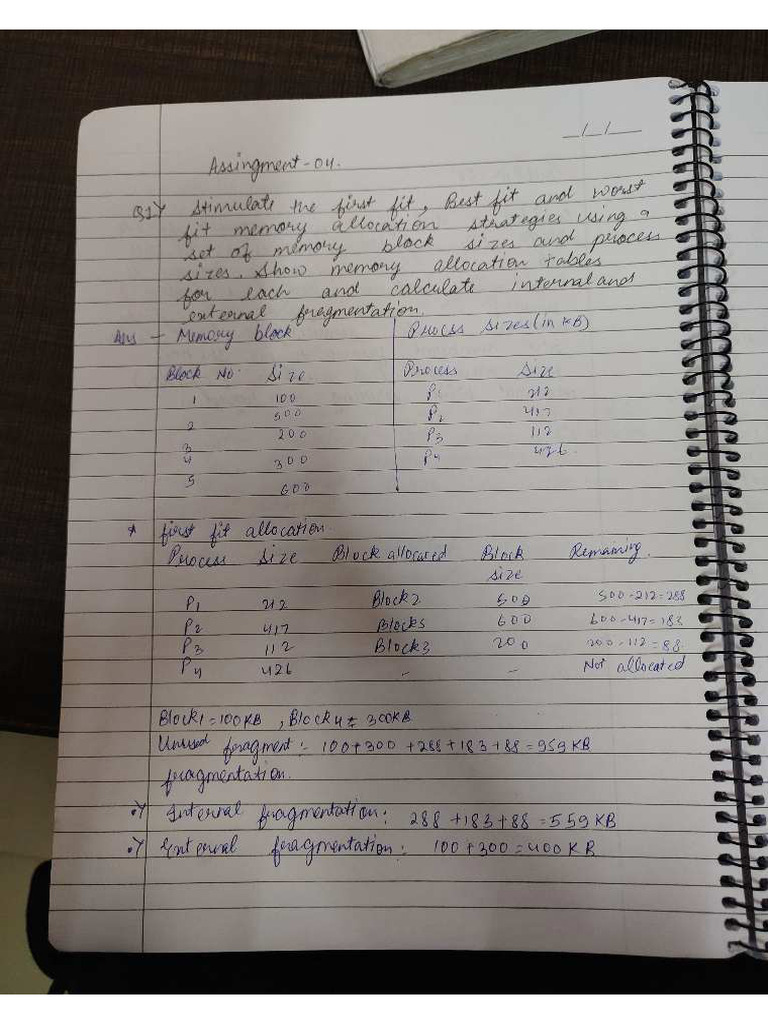 _/_/_
Assingment-04.
Q1) Stimulate the first fit, Best fit and worst
fit memory allocation strategies using a
set of memory block sizes and process
sizes. Show memory allocation tables
for each and calculate internal and
external fragmentation.
Ans - Memory block Process Sizes (in KB)
Block No. Size Process Size
1 100 P1 212
2 500 P2 417
3 200 P3 112
4 300 P4 426.
5 600
* first fit allocation.
Process Size Block allocared Block size Remaining.
P1 212 Block2 500 500-212=288
P2 417 Block5 600 600-417=183
P3 112 Block3 200 200-112=88.
P4 426 - - Not allocated
Block1=100KB , Block4= 300KB
Unused fragment: 100+300+288+183+88=959KB
fragmentation.
Internal fragmentation: 288+183+88=559KB
External fragmentation: 100+300=400KB